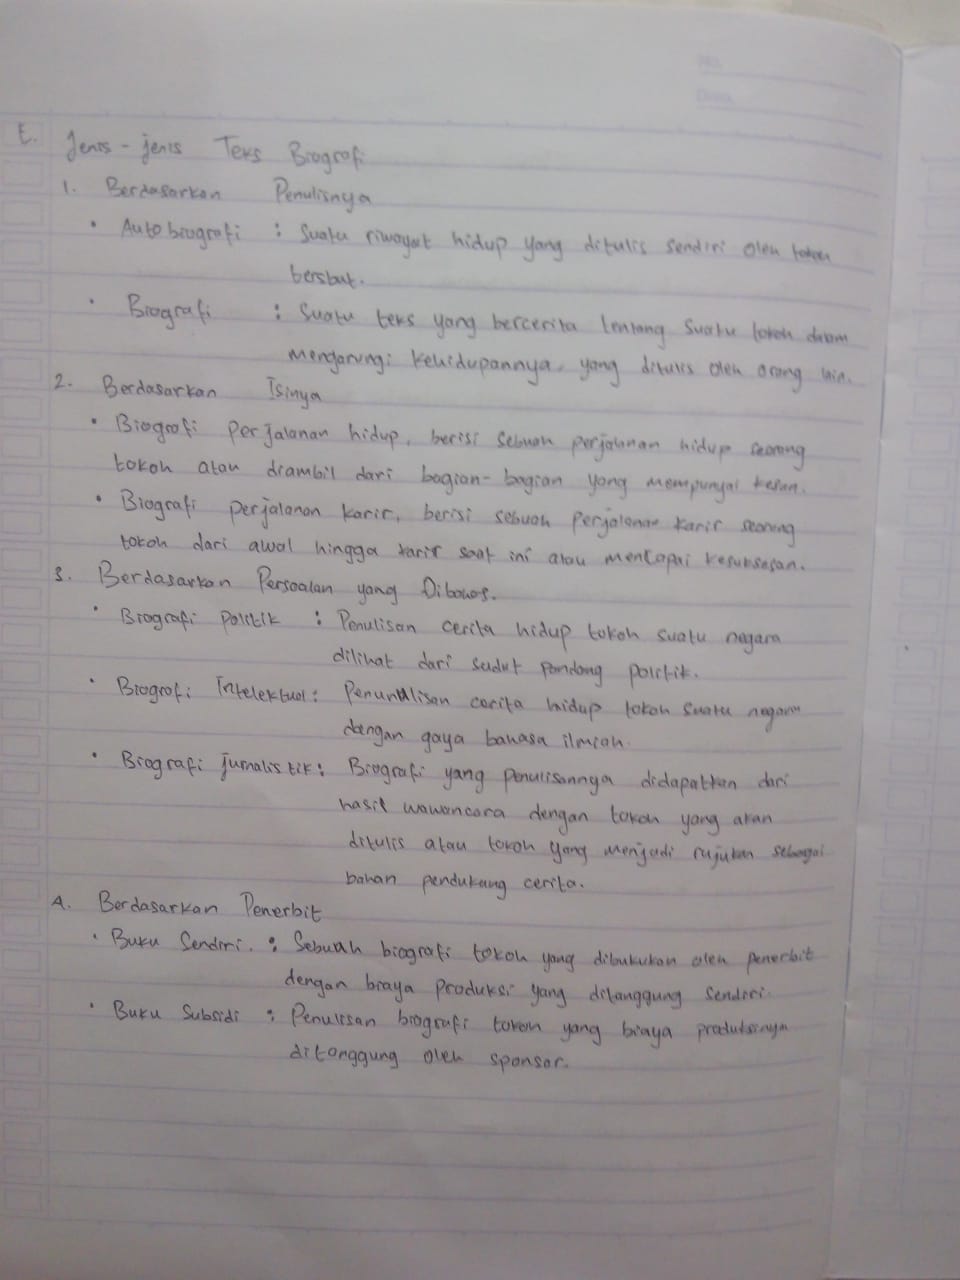 E. Jenis - jenis Teks Biografi
1. Berdasarkan Penulisnya
• Autobiografi : Suatu riwayat hidup yang ditulis sendiri oleh tokoh
tersbut.
• Biografi : Suatu teks yang bercerita tentang suatu tokoh dalam
mengarungi kehidupannya, yang ditulis oleh orang lain.
2. Berdasarkan Isinya
• Biografi perjalanan hidup, berisi sebuah perjalanan hidup seorang
tokoh atau diambil dari bagian-bagian yang mempunyai kesan.
• Biografi perjalanan karir, berisi sebuah perjalanan karir seorang
tokoh dari awal hingga karir saat ini atau mencapai kesuksesan.
3. Berdasarkan Persoalan yang Dibahas.
• Biografi politik : Penulisan cerita hidup tokoh suatu negara
dilihat dari sudut pandang politik.
• Biografi Intelektual : cerita hidup tokoh suatu negara
dengan gaya bahasa ilmiah.
• Biografi jurnalistik : Biografi yang penulisannya didapatkan dari
hasil wawancara dengan tokoh yang akan
ditulis atau tokoh yang menjadi rujukan sebagai
bahan pendukung cerita.
4. Berdasarkan Penerbit
• Buku Sendiri : Sebuah biografi tokoh yang dibukukan oleh penerbit
dengan biaya produksi yang ditanggung sendiri.
• Buku Subsidi : Penulisan biografi tokoh yang biaya produksinya
ditanggung oleh sponsor.